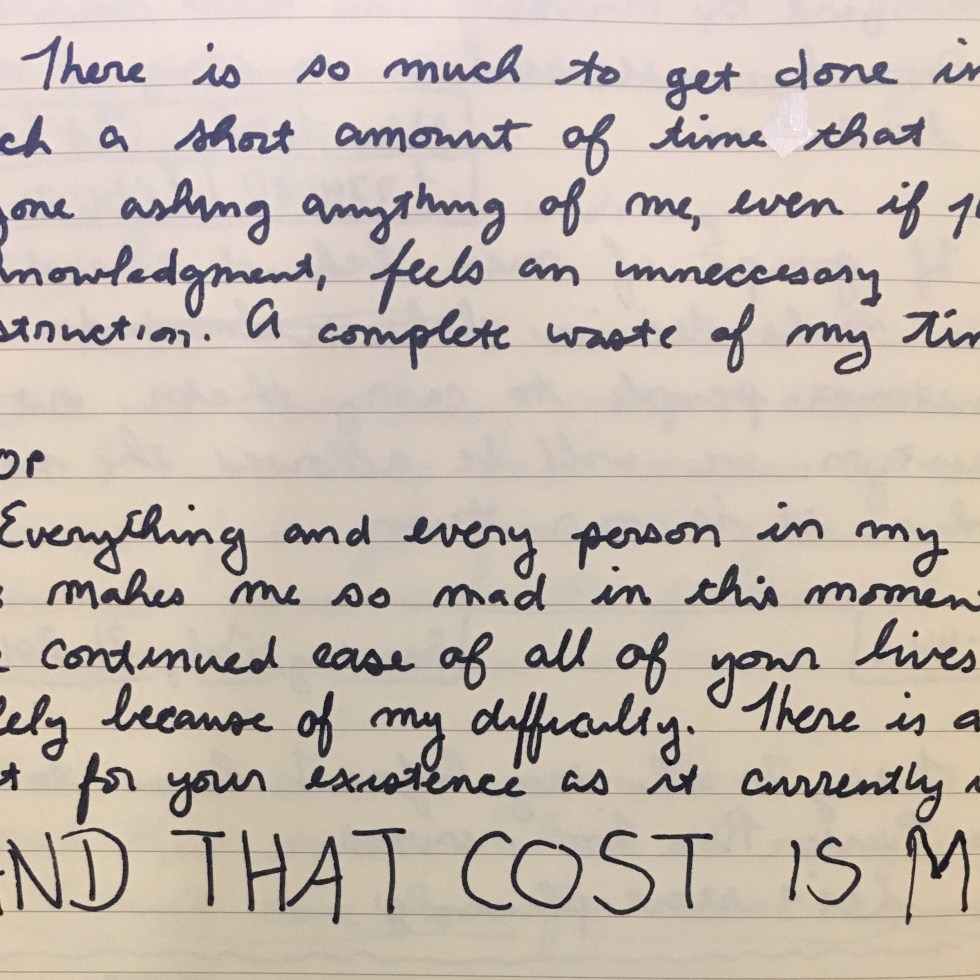 There is so much to get done in
ch a short amount of time that
yone asking anything of me, even if
knowledgment, feels an unneccesary
struction. A complete waste of my Tim
OP
Everything and every person in my
makes me so mad in this momen
continued ease of all of your lives
lely because of my difficulty. There is a
t for your existence as it currently
AND THAT COST IS M